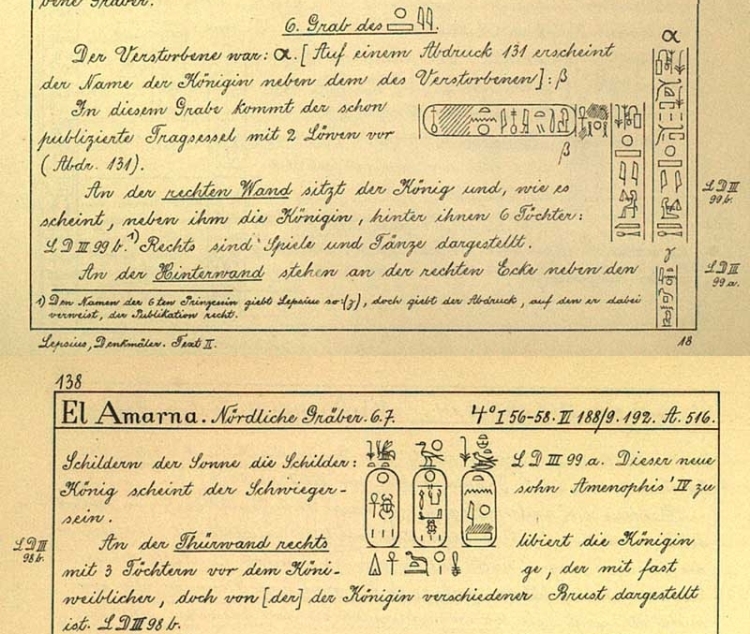 6. Grab des
α
Der Verstorbene war: α. [Auf einem Abdruck 131 erscheint
der Name der Königin neben dem des Verstorbenen]: β
In diesem Grabe kommt der schon
publizierte Tragsessel mit 2 Löwen vor
(Abdr. 131).
β
An der rechten Wand sitzt der König und, wie es
scheint, neben ihm die Königin, hinter ihnen 6 Töchter:
L D III 99 b. ¹) Rechts sind Spiele und Tänze dargestellt.
L D III
99 b.
γ
An der Hinterwand stehen an der rechten Ecke neben den
L D III
99 a.
1) Den Namen der 6ten Prinzessin giebt Lepsius so: (γ), doch giebt der Abdruck, auf den er dabei
verweist, der Publikation recht.
Lepsius, Denkmäler. Text II.
18
138
El Amarna. Nördliche Gräber. 6.7.
4° I 56-58. VI 188/9. 192. A. 516.
Schildern der Sonne die Schilder: L D III 99 a. Dieser neue
König scheint der Schwieger- sohn Amenophis' IV zu
sein.
An der Thürwand rechts libiert die Königin
L D III
98 b.
mit 3 Töchtern vor dem Köni- ge, der mit fast
weiblicher, doch von [der] der Königin verschiedener Brust dargestellt
ist. L D III 98 b.